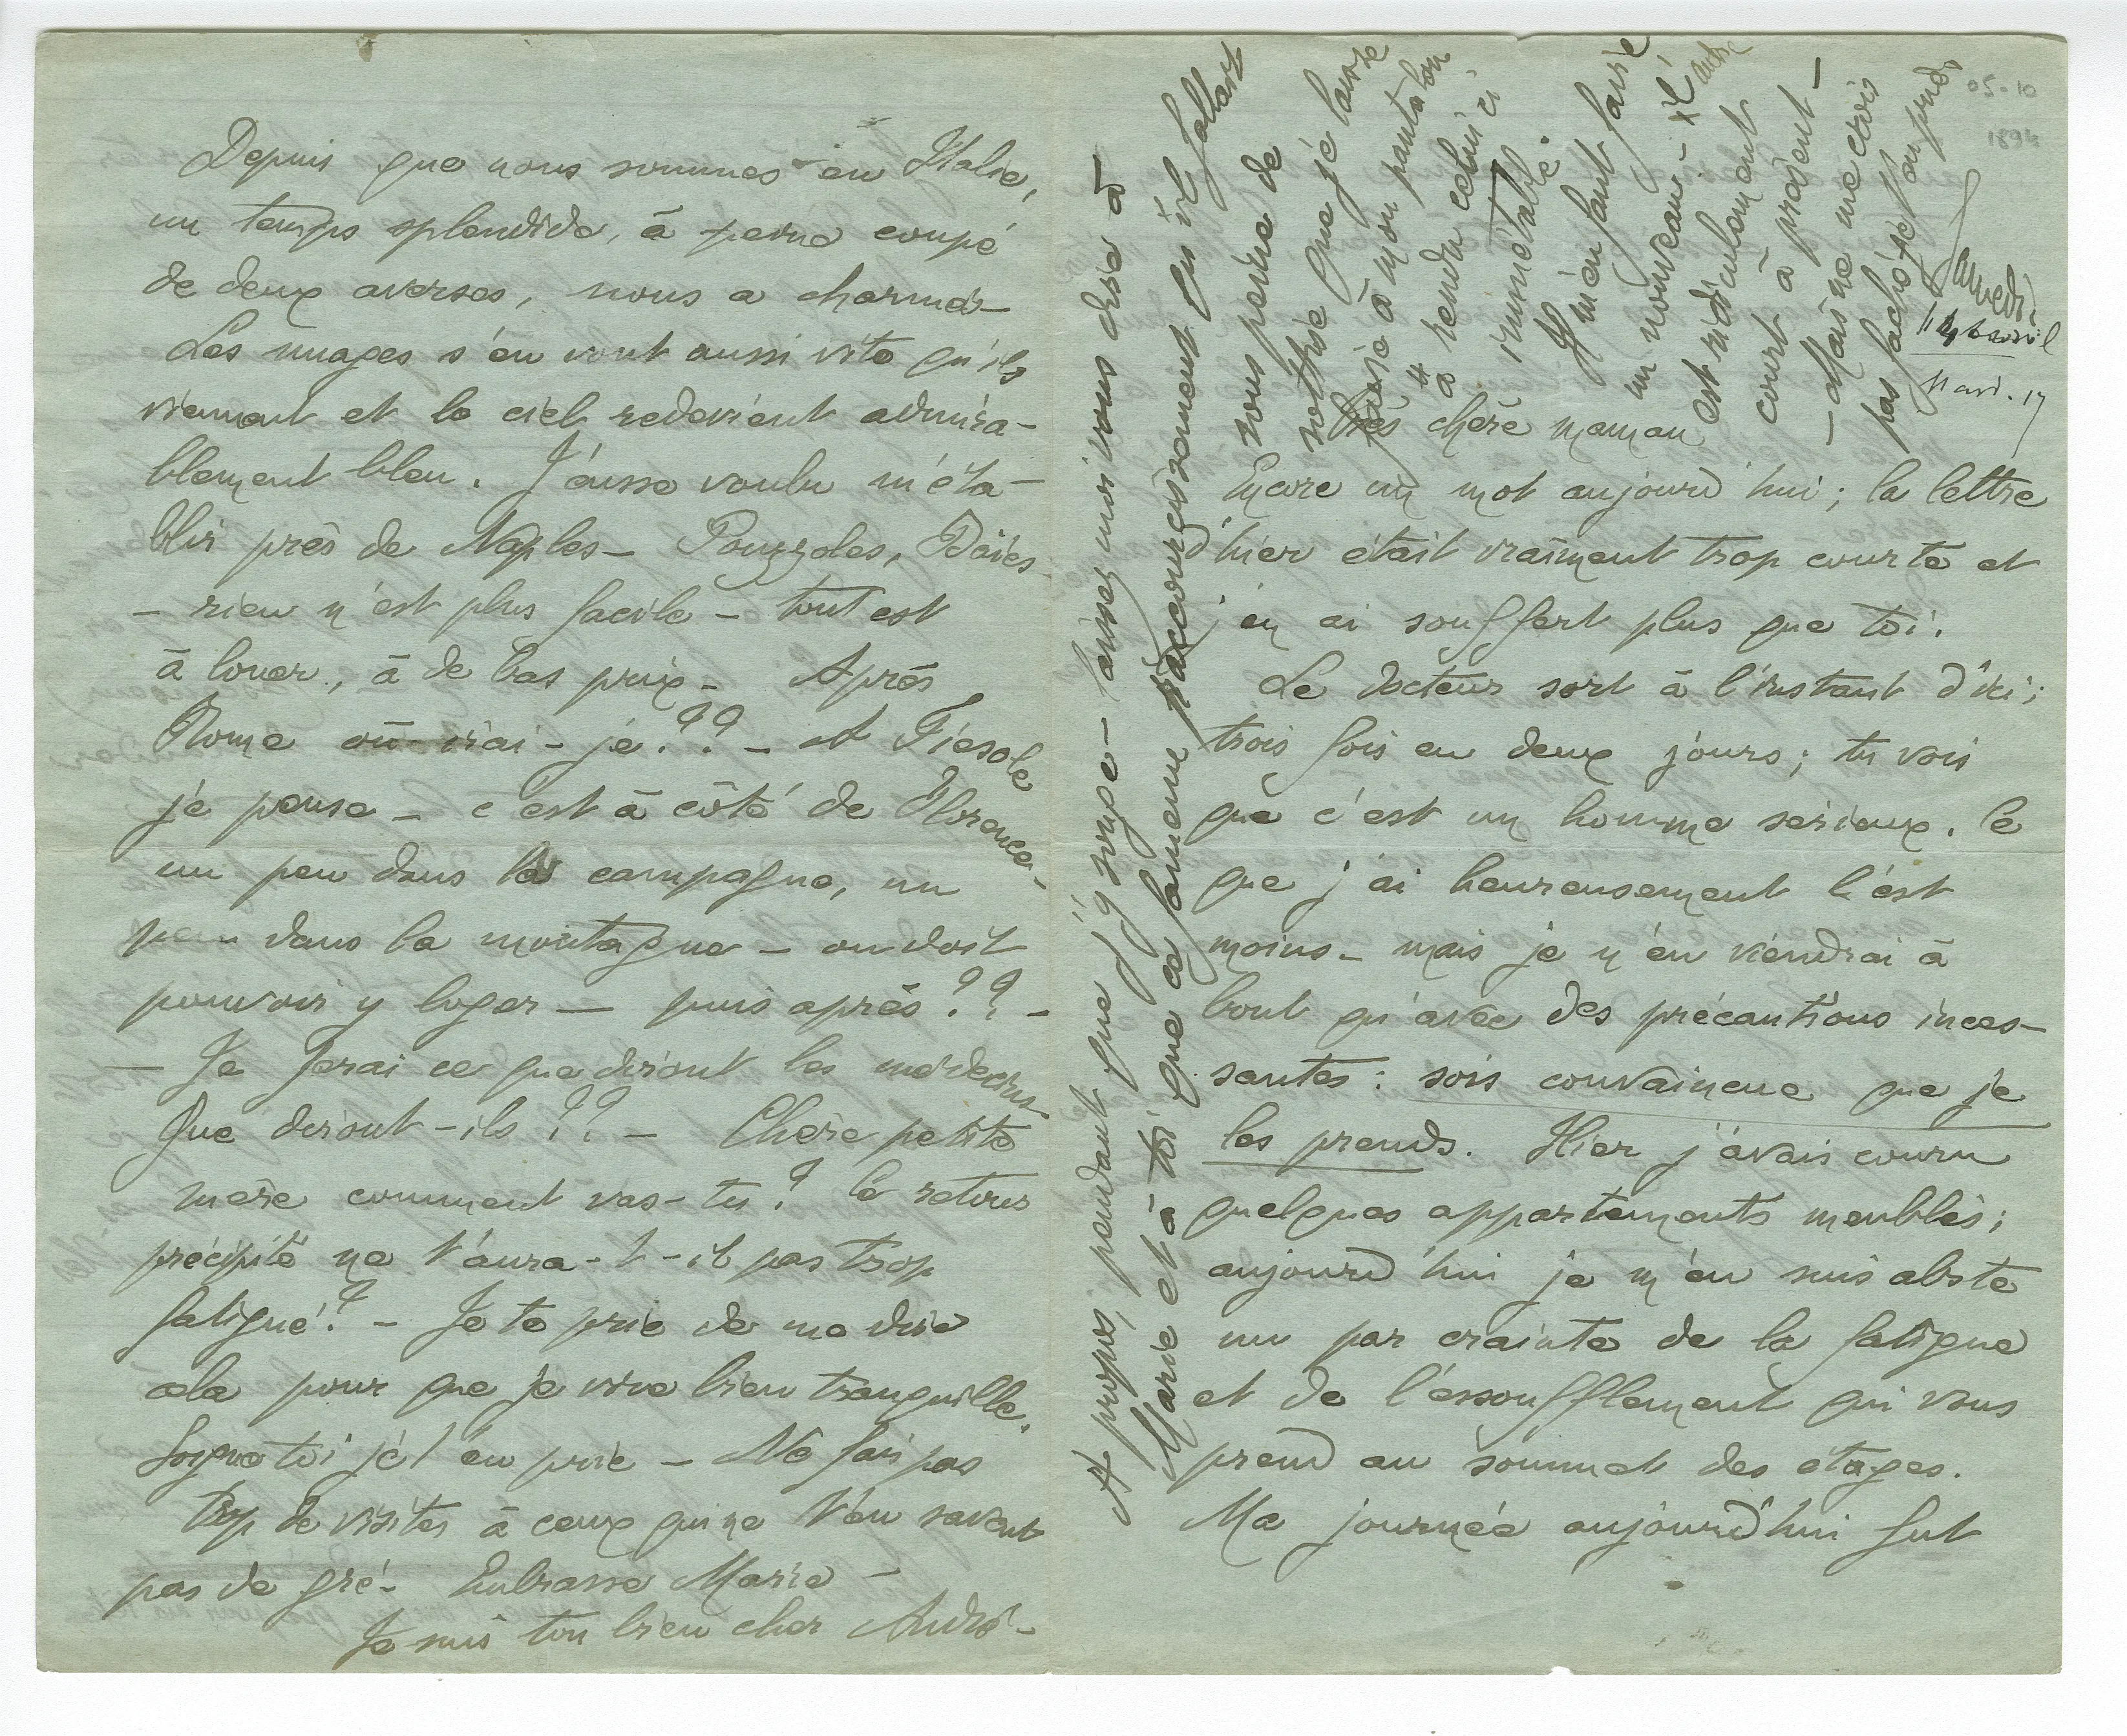 05-10
1894
Samedi
14 avril
11 av. 17
Très chère maman
Encore un mot aujourd'hui ; la lettre
d'hier était vraiment trop courte et
j'en ai souffert plus que toi.
Le docteur sort à l'instant d'ici ;
trois fois en deux jours ; tu vois
que c'est un homme serieux. Ce
que j'ai heureusement l'est
moins – mais je n'en viendrai à
bout qu'avec des précautions inces-
santes : sois convaincue que je
les prends. Hier j'avais couru
quelques appartements meublés ;
aujourd'hui je m'en suis abste
nu par crainte de la fatigue
et de l'essoufflement qui vous
prend au sommet des étages.
Ma journée aujourd'hui fut
Depuis que nous sommes en Italie,
un temps splendide, à peine coupé
de deux averses, nous a charmés –
Les nuages s'en vont aussi vite qu'ils
viennent et le ciel redevient admira-
blement bleu. J'eusse voulu m'éta-
blir près de Naples – Pouzzoles, Baïes
– rien n'est plus facile – tout est
à louer, à de bas prix – Après
Rome où irai-je ?? – A Fiesole
je pense – c'est à côté de Florence,
un peu dans la campagne, un
peu dans la montagne – on doit
pouvoir y loger — puis après ?? –
— Je ferai ce que diront les médecins –
Que diront-ils ?? – Chère petite
mère comment vas-tu ? le retour
précipité ne t'aura-t-il pas trop
fatigué ? – Je te prie de me dire
cela pour que je vive bien tranquille.
Soigne toi je t'en prie – Ne fais pas
trop de visites à ceux qui ne t'en savent
pas de gré – Embrasse Marie –
Je suis ton bien cher André –
A propos, pendant que j'y songe – laissez moi vous dire à
Marie et à toi que ce fameux raccourcissement qu'il fallait
sous peine de
sottise que je laisse
faire à mon pantalon
a rendu celui ci
immettable.
Il m'en faut faire
un nouveau – l'autre
est ridiculement
court à présent –
– Mais ne me crois
pas fâché pour